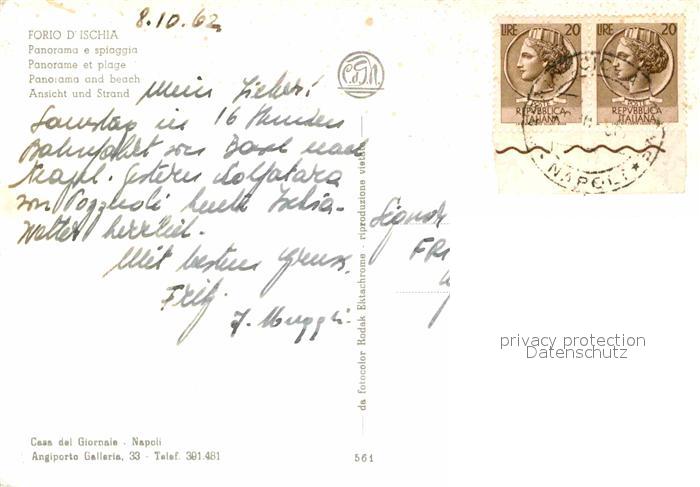 8.10.62
FORIO D'ISCHIA
Panorama e spiaggia
Panorame et plage
Panorama and beach
Ansicht und Strand
Mein Lieber!
Samstag in 16 Stunden
Bahnfahrt von Basel nach
Napl. Gestern Solfatara
von Pozzuoli heute Ischia.
Wetter herrlich.
Mit besten Gruss
Fritz.
J. Muggli
Casa del Giornale - Napoli
Angiporto Galleria, 33 - Telef. 391.481
561
da fotocolor Kodak Ektachrome - riproduzione vietata
LIRE 20
POSTE
REPVBBLICA
ITALIANA
LIRE 20
POSTE
REPVBBLICA
ITALIANA
NAPOLI
privacy protection
Datenschutz